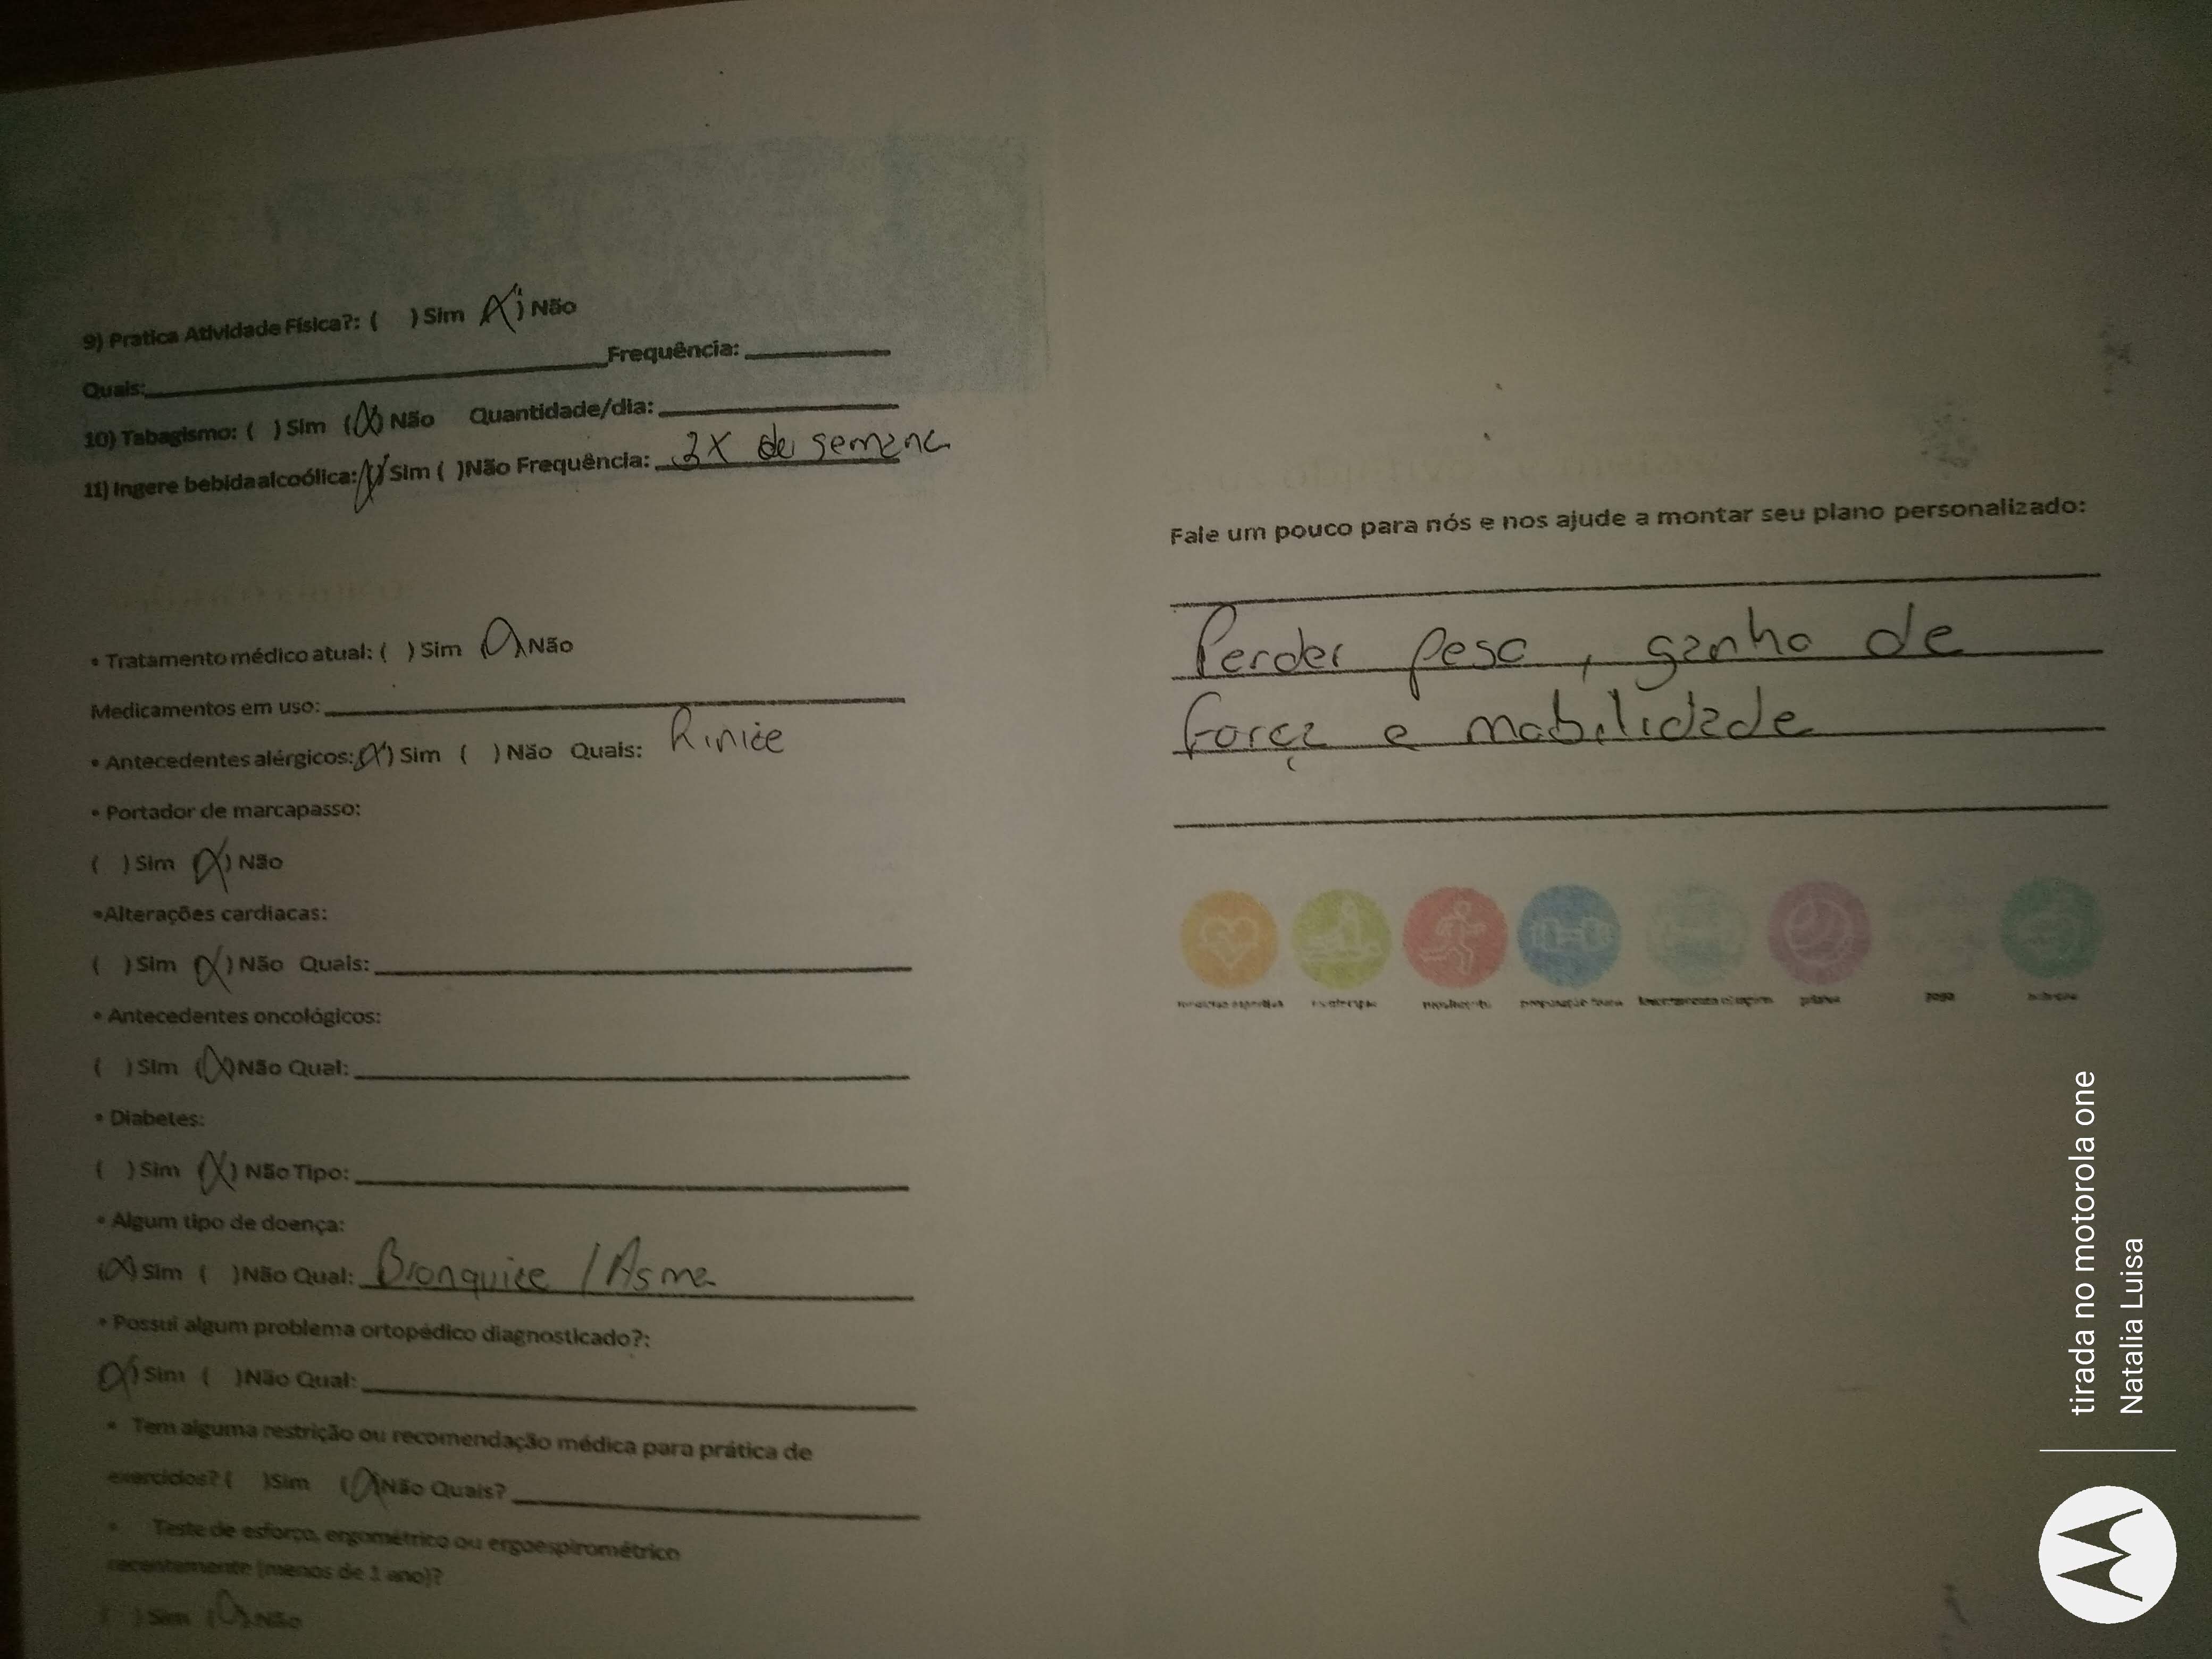 9) Pratica Atividade Física?: ( ) Sim (X) Não
Quais:____________________Frequência:________
10) Tabagismo: ( ) Sim (X) Não Quantidade/dia:____________
11) Ingere bebida alcoólica:(X) Sim ( )Não Frequência: 2x da semana
• Tratamento médico atual: ( ) Sim (X) Não
Medicamentos em uso:____________________
• Antecedentes alérgicos:(X) Sim ( ) Não Quais: Rinite
• Portador de marcapasso:
( ) Sim (X) Não
•Alterações cardíacas:
( ) Sim (X) Não Quais:____________________
• Antecedentes oncológicos:
( ) Sim (X)Não Qual:____________________
• Diabetes:
( ) Sim (X) Não Tipo:____________________
• Algum tipo de doença:
(X) Sim ( )Não Qual: Bronquite / Asma
• Possui algum problema ortopédico diagnosticado?:
(X) Sim ( )Não Qual:____________________
• Tem alguma restrição ou recomendação médica para prática de
exercícios? ( )Sim (X)Não Quais?____________________
• Teste de esforço, ergométrico ou ergoespirométrico
recentemente (menos de 1 ano)?
( ) Sim (X)Não
Fale um pouco para nós e nos ajude a montar seu plano personalizado:
Perder peso, ganho de
força e mobilidade
fisioterapia
pilates
yoga
tirada no motorola one
Natalia Luisa